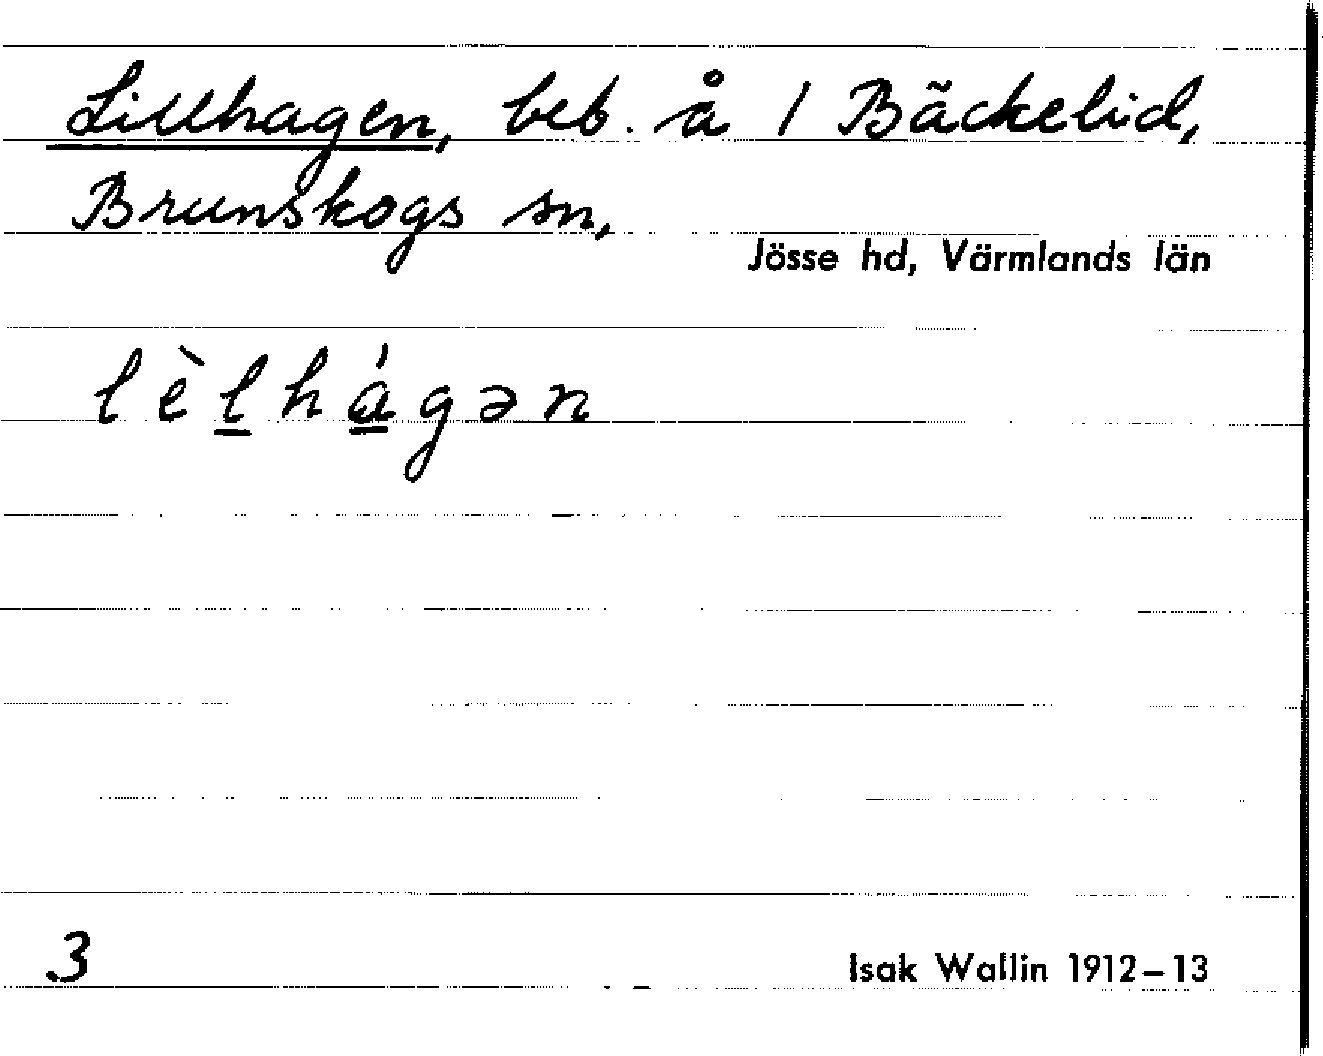 Lillhagen, beb. å 1 Bäckelid,
Brunskogs sn,
Jösse hd, Värmlands län
lèl̲há̲gən
3
Isak Wallin 1912–13